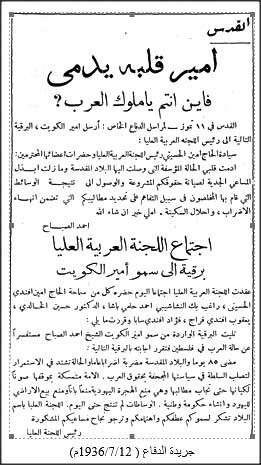 القدس
أمير قلبه يدمى
فاين انتم ياملوك العرب؟
القدس في ١١ تموز – لمراسل الدفاع الخاص : أرسل امير الكويت ، البرقية
التالية الى رئيس اللجنة العربية العليا :
سيادة الحاج امين الحسيني رئيس اللجنة العربية العليا وحضرات اعضائها المحترمين :
ادمت قلبي الحالة المؤسفة التي وصلت اليها البلاد المقدسة وما زلت ابذل
المساعي الجدية لصيانة حقوقكم المشروعة والوصول الى نتيجة الوسائط
التي قام بها المخلصون في سبيل التفاهم على تحديد مطاليبكم التي تضمن انهاء
الاضراب ، واحلال السكينة . املي خير ان شاء الله
احمد الصباح
اجتماع اللجنة العربية العليا
برقية الى سمو أمير الكويت
عقدت اللجنة العربية العليا اجتماعها اليوم حضره كل من سماحة الحاج امين افندي
الحسيني ، راغب بك النشاشيبي احمد حلمي باشا ، الدكتور حسين الخالدي ،
يعقوب افندي فراج ، فؤاد افندي سابا وقررت ما يلي :
تليت البرقية الواردة من سمو امير الكويت الشيخ احمد الصباح مستفسراً
عن حالة العرب في فلسطين فتقرر اجابته بالبرقية التالية :
مضى ٨٥ يوما والبلاد المقدسة مضربة اضرابا عاما والحالة تشتد في الاستمرار
لتصلب السلطة في سياستها المجحفة بحقوق العرب . الامة متمسكة بموقفها صونا
لكيانها حتى تجاب مطالبها وهي منع الهجرة اليهودية منعاً باتاً ومنع بيع الاراضي
لليهود وانشاء حكومة وطنية . الوساطات لم تنتج حتى اليوم . اللجنة العليا باسم
البلاد تشكر لسموكم عطفكم واهتمامكم وترجو نجاح مساعيكم المشكورة
رئيس اللجنة العليا
جريدة الدفاع ( 1936/7/12م)